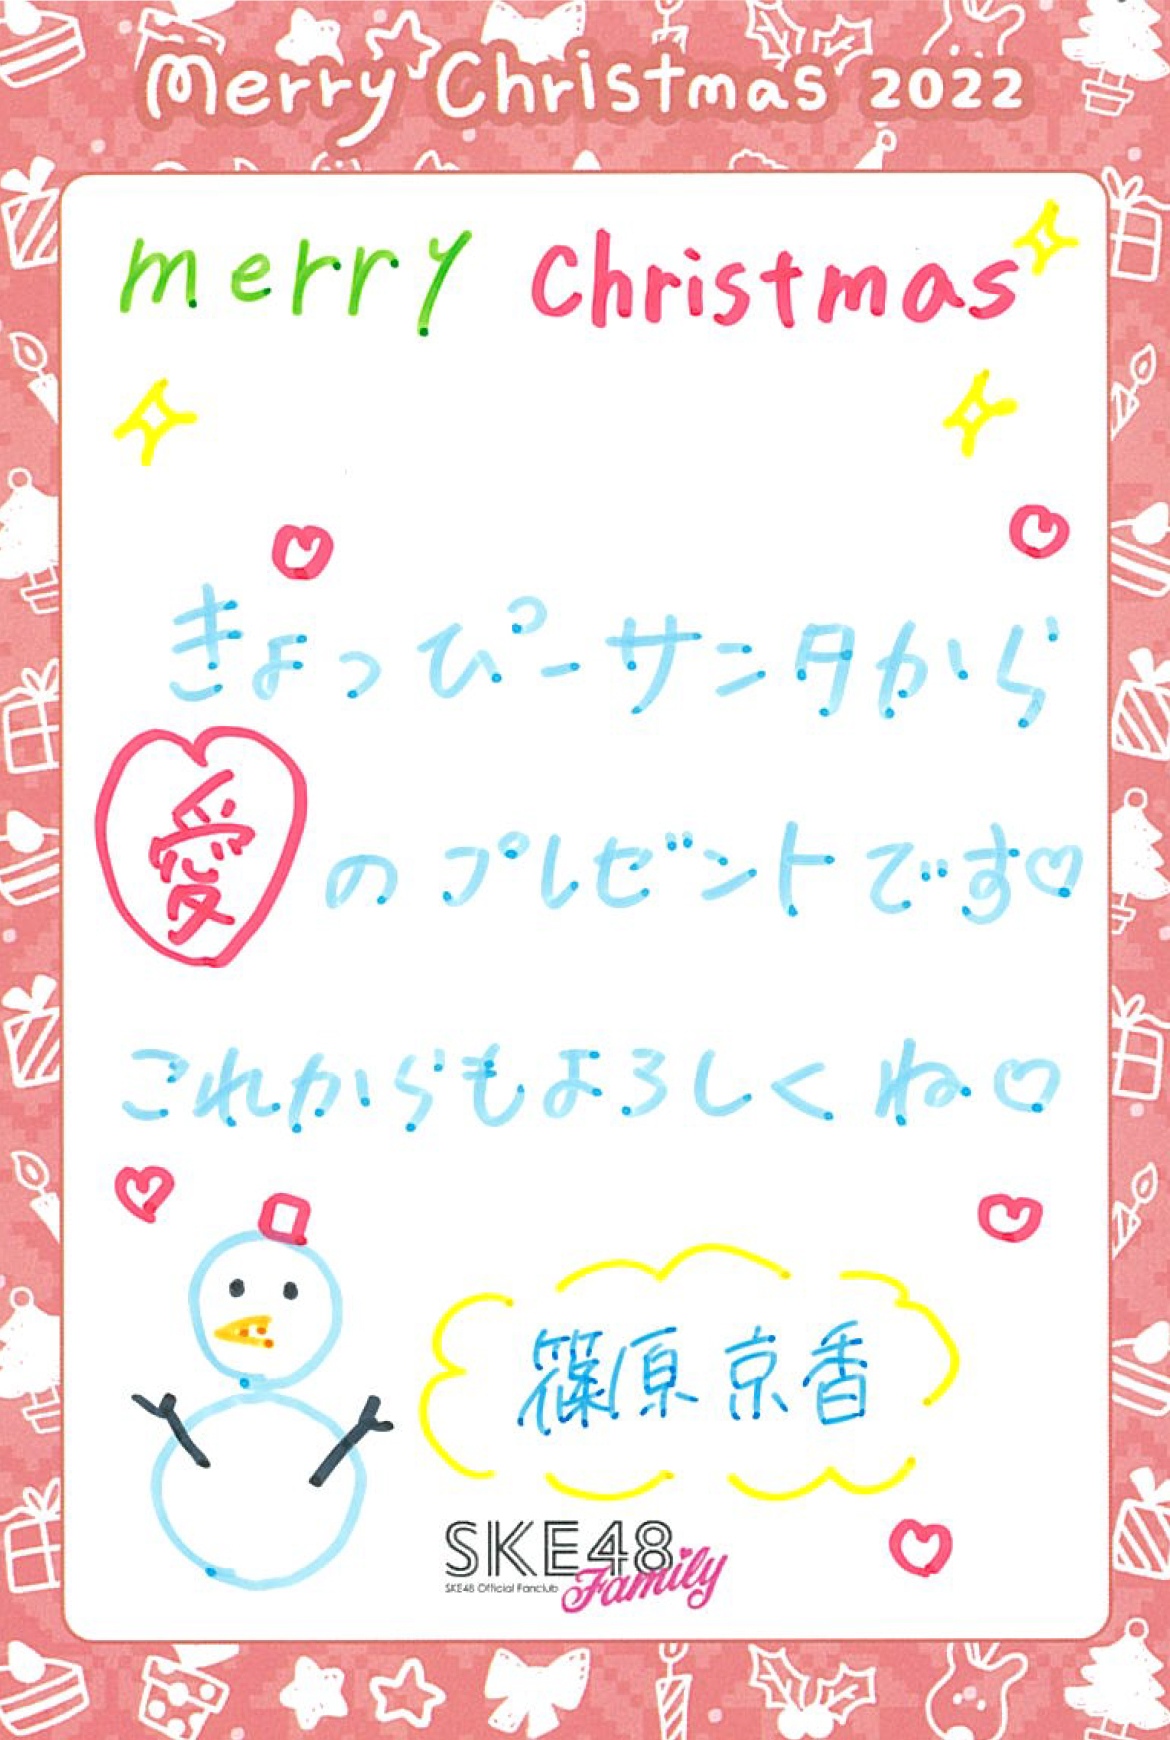 Merry Christmas 2022
merry christmas
きょっぴーサンタから
愛のプレゼントです♡
これからもよろしくね♡
篠原京香
SKE48
Family
SKE48 Official Fanclub